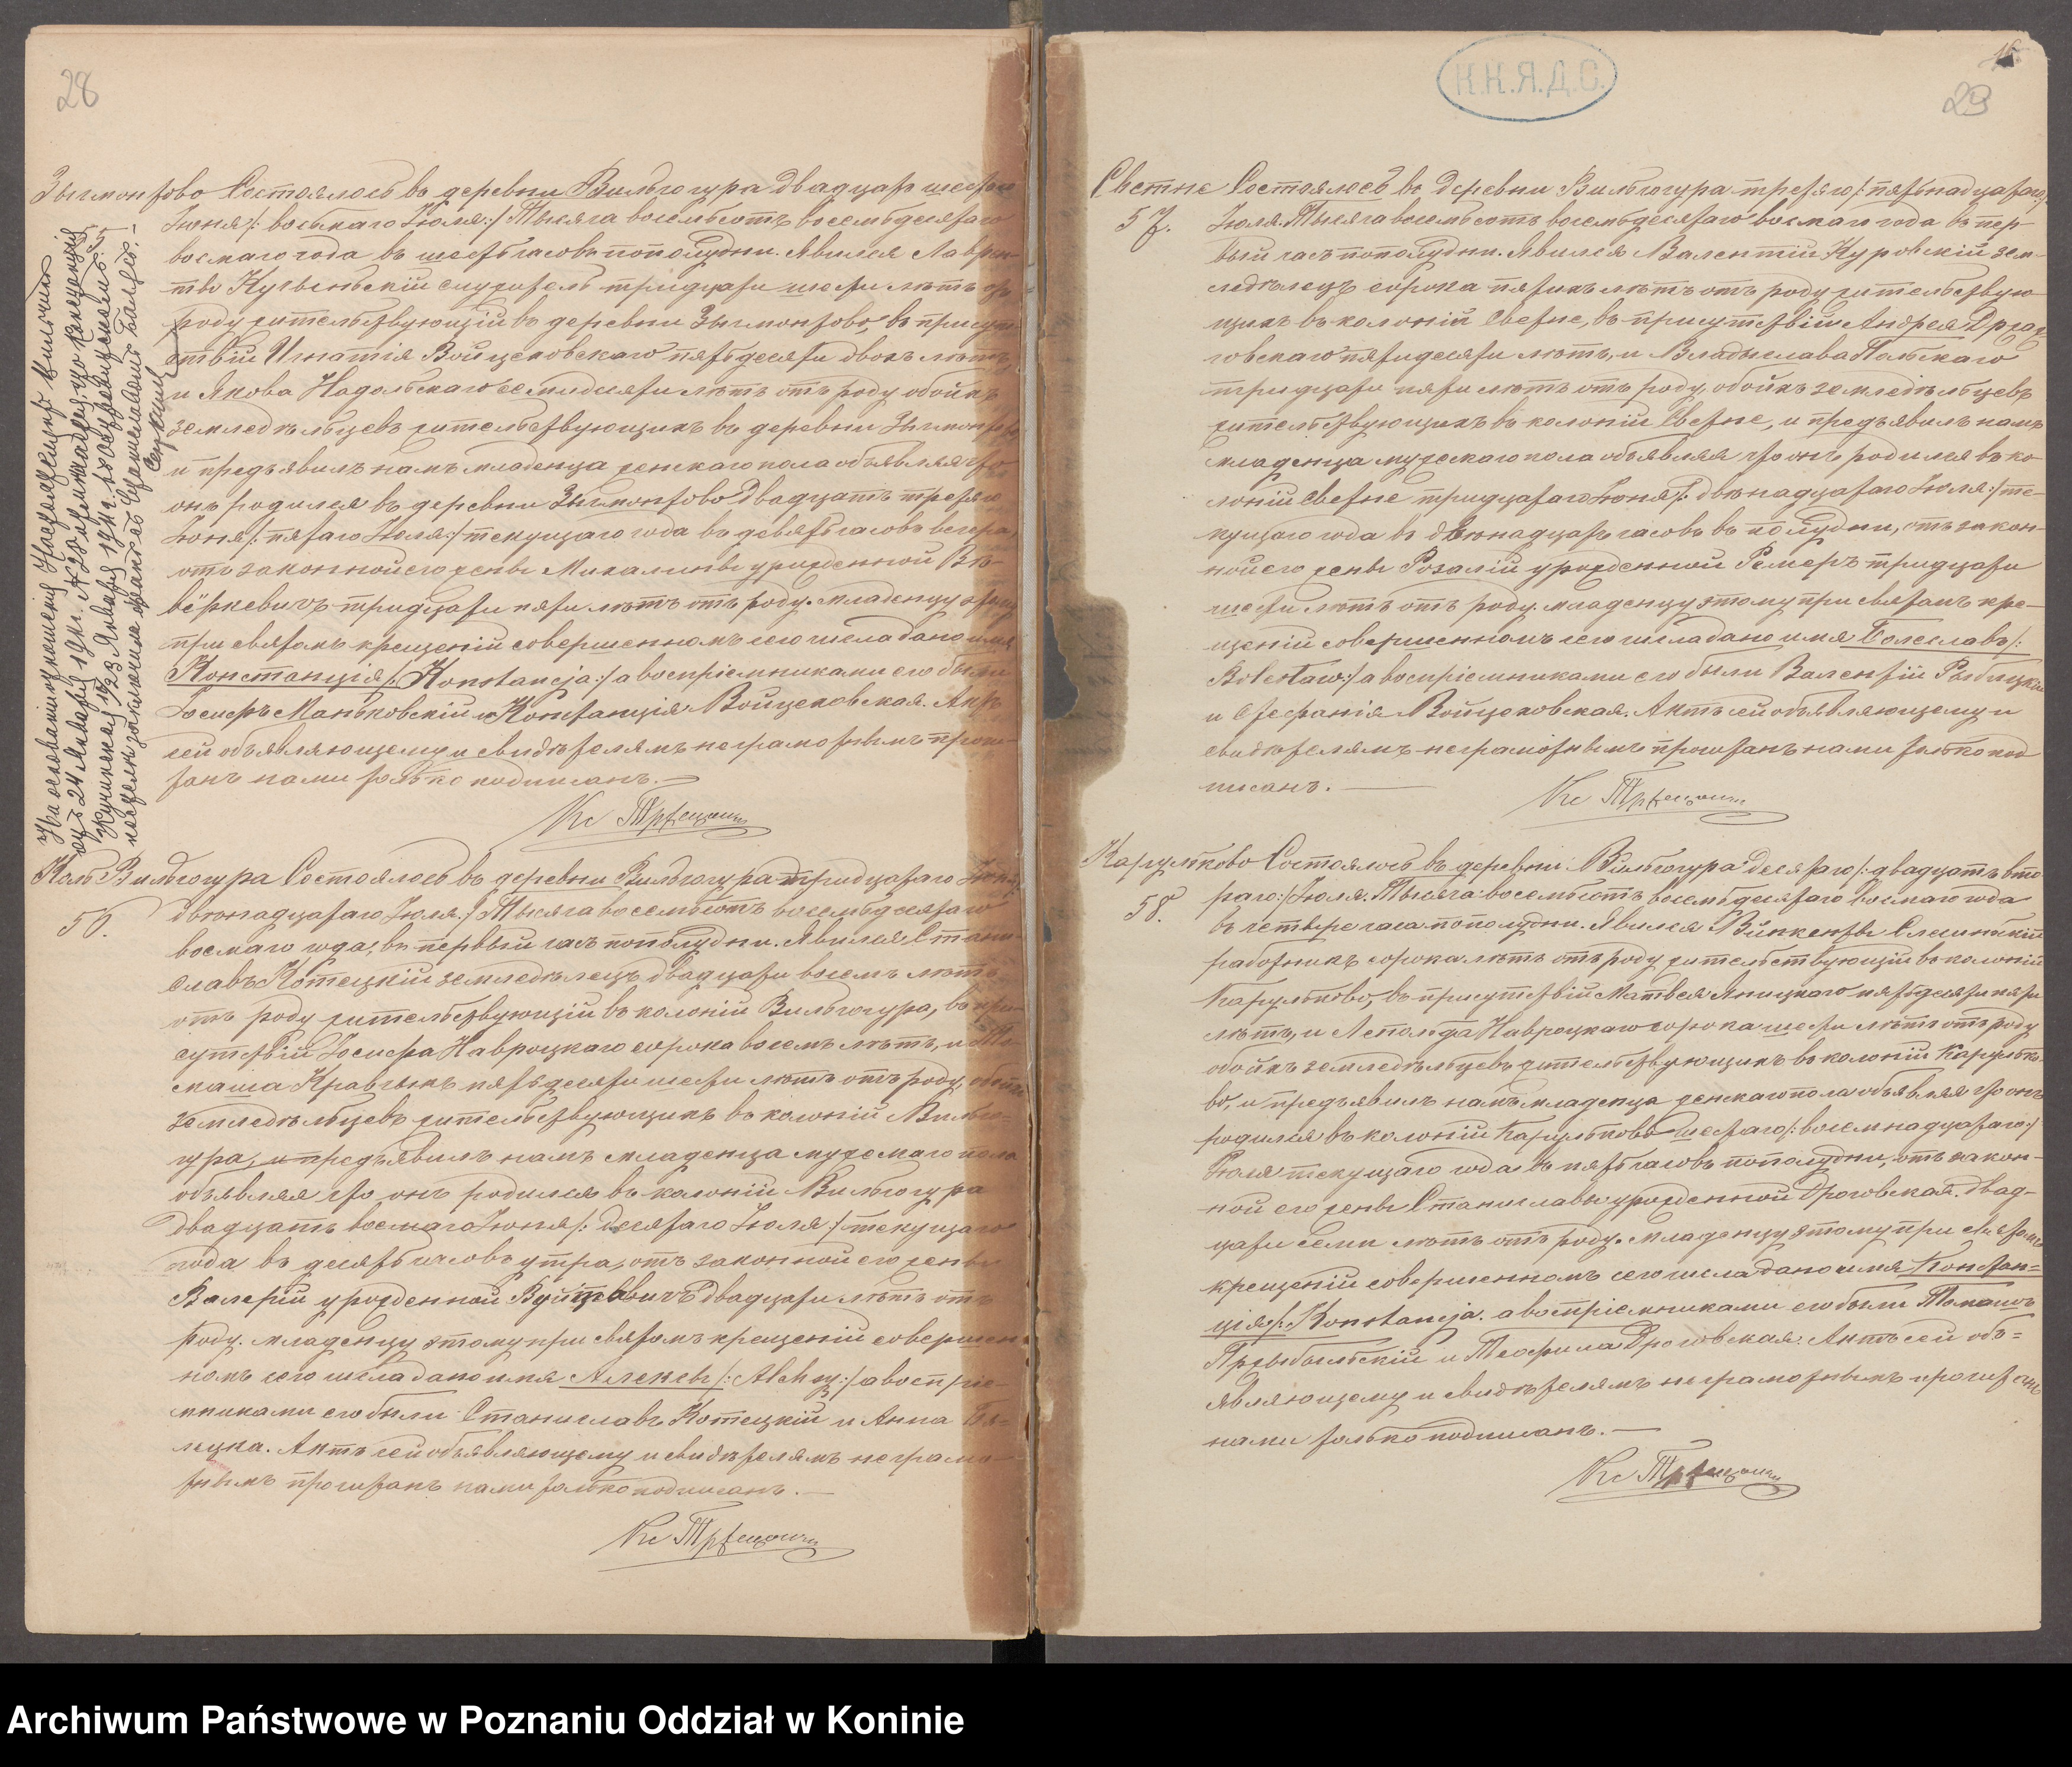 28
Зыгмонтово Состоялось въ деревни Вильчогура двадцать шестаго
Іюня /: восьмаго Іюля :/ Тысяча восемьсотъ восемьдесятаго
восмаго года въ шесть часовъ пополудни. Явился Лаврен-
тій служитель тридцати шести лѣтъ отъ
роду жительствующій въ деревни Зыгмонтово, въ присут-
ствіи Игнатія Войцеховскаго пятьдесяти двохъ лѣтъ,
и Якова Надольскаго семидесяти лѣтъ отъ роду обоихъ
земледѣльцевъ жительствующихъ въ деревни Зыгмонтово
и предъявилъ намъ младенца женскаго пола объявляя что
онъ родился въ деревни Зыгмонтово двадцать третяго
Іюня /: пятаго Іюля :/ текущаго года въ девять часовъ вечера,
отъ законной его жены Михалины урожденной Вѣ-
тридцати пяти лѣтъ отъ роду. Младенцу этому
при святомъ крещеніи совершенномъ сего числа дано имя
Констанція /: Konstancja :/ а воспріемниками его были
Іосифъ Маньковскій и Констанція Войцеховская. Актъ
сей объявляющему и свидѣтелямъ неграмотнымъ прочи-
танъ нами только подписанъ. —
Кс
55.
Кол Вильчогура Состоялось въ деревни Вильчогура тридцатаго Іюня
56.
двѣнадцатаго Іюля :/ Тысяча восемьсотъ восемьдесятаго
восмаго года, въ первый часъ пополудни. Явился Стани-
славъ Котецкій земледѣлецъ двадцати восемъ лѣтъ
отъ роду жительствующій въ колоніи Вильчогура, въ при-
сутствіи Іосифа Навроцкаго сорока восемъ лѣтъ, и То-
маша Кравчыкъ пятьдесяти шести лѣтъ отъ роду, обоихъ
земледѣльцевъ жительствующихъ въ колоніи Вильчо-
гура, и предъявилъ намъ младенца мужскаго пола
объявляя что онъ родился въ колоніи Вильчогура
двадцать восмаго Іюня /: десятаго Іюля :/ текущаго
года въ десять часовъ утра, отъ законной его жены
Валеріи урожденной двадцати лѣтъ отъ
роду. Младенцу этому при святомъ крещеніи совершен-
номъ сего числа дано имя Алексы /: Alexy :/ а воспріе-
мниками его были Станиславъ Котецкій и Анна
Актъ сей объявляющему и свидѣтелямъ неграмо-
тнымъ прочитанъ нами только подписанъ. —
Кс
К.К.Я.Д.С.
16
29
Светне Состоялось въ деревни Вильчогура третяго /: пятьнадцатаго :/
57.
Іюля Тысяча восемьсотъ восемьдесятаго восмаго года въ пер-
вый часъ пополудни. Явился Валентій Куровскій зем-
ледѣлецъ сорока пятихъ лѣтъ отъ роду жительствую-
щихъ въ колоніи Светне, въ присутствіи Андрея
пятидесяти лѣтъ, и Владыслава Польскаго
тридцати пяти лѣтъ отъ роду, обоихъ земледѣльцевъ
жительствующихъ въ колоніи Светне, и предъявилъ намъ
младенца мужескаго пола объявляя что онъ родился въ ко-
лоніи Светне тридцатаго Іюня /: двѣнадцатаго Іюля :/ те-
кущаго года въ двѣнадцать часовъ въ полудни, отъ закон-
ной его жены Розаліи урожденной Ремеръ тридцати
шести лѣтъ отъ роду. Младенцу этому при святомъ кре-
щеніи совершенномъ сего числа дано имя Болеславъ /:
Bolesław :/ а воспріемниками его были Валентій
и Стефанія Войцеховская. Актъ сей объявляющему и
свидѣтелямъ неграмотнымъ прочитанъ нами только под-
писанъ. —
Кс
Состоялось въ деревни Вильчогура десятаго /: двадцать вто-
58.
раго :/ Іюля. Тысяча восемьсотъ восемьдесятаго восмаго года
въ четыре часа пополудни. Явился Винкенты
работникъ сорока лѣтъ отъ роду жительствующій въ колоніи
въ присутствіи Матвея пятьдесяти пяти
лѣтъ, и Леполда Навроцкаго сорока шести лѣтъ отъ роду
обоихъ земледѣльцевъ жительствующихъ въ колоніи
во, и предъявилъ намъ младенца женскаго пола объявляя что онъ
родился въ колоніи шестаго /: восемнадцатаго :/
Іюля текущаго года въ пять часовъ пополудни, отъ закон-
ной его жены Станиславы урожденной Дроговская. двад-
цати семи лѣтъ отъ роду. Младенцу этому при святомъ
крещеніи совершенномъ сего числа дано имя Констан-
ція /: Konstancja. а воспріемниками его были Томашъ
Пржыбыльскій и Теофила Дроговская. Актъ сей объ-
являющему и свидѣтелямъ неграмотнымъ прочитанъ
нами только подписанъ. —
Кс
Archiwum Państwowe w Poznaniu Oddział w Koninie